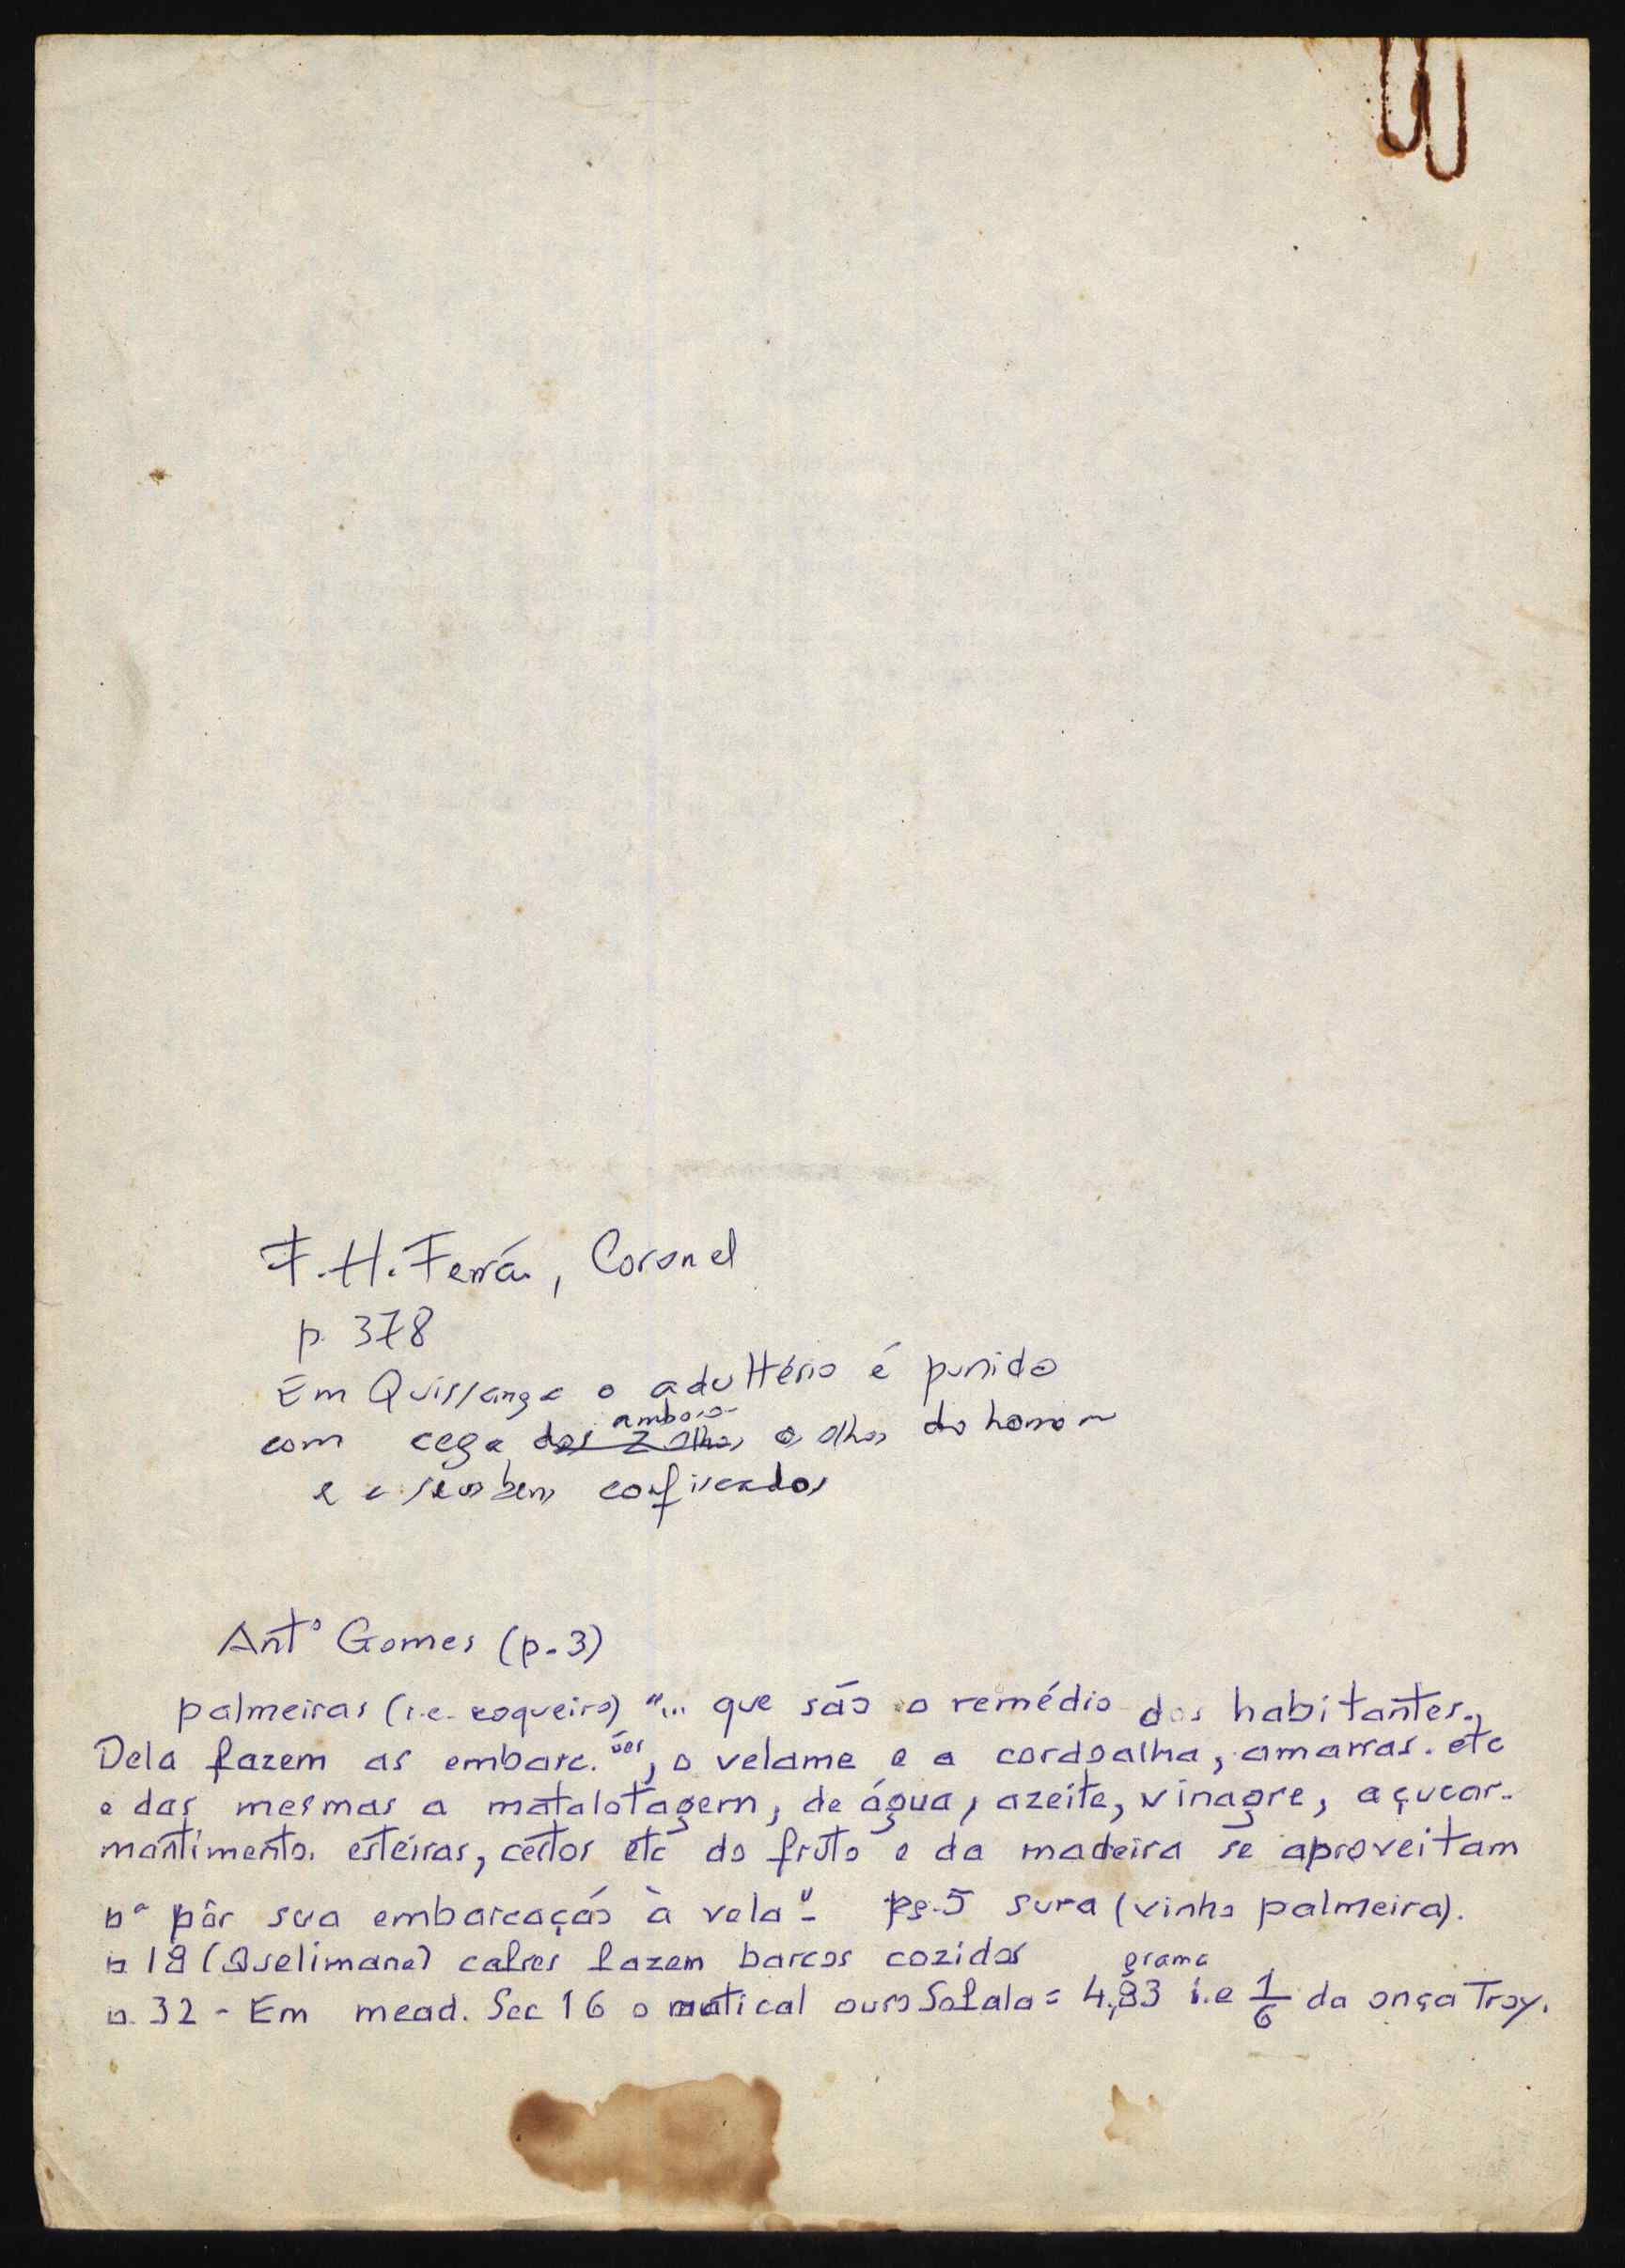 F. H. Ferrão, Coronel
p. 378
Em Quissanga o adultério é punido
com cega dos 2 olhos ambos os olhos do homem
e seus bens confiscados
Antº Gomes (p. 3)
palmeiras (i.e. coqueiro) "... que são o remédio dos habitantes.
Dela fazem as embarc.ões, o velame e a cordoalha, amarras. etc
e das mesmas a matalotagem, de água, azeite, vinagre, açucar.
mantimento. esteiras, cestos etc do fruto e da madeira se aproveitam
pª pôr sua embarcação à vela". pg. 5 sura (vinho palmeira).
p. 18 (Quelimane) cafres fazem barcos cozidos
p. 32 - Em mead. Sec 16 o matical ouro Sofala = 4,83 grama i.e 1/6 da onça Troy.